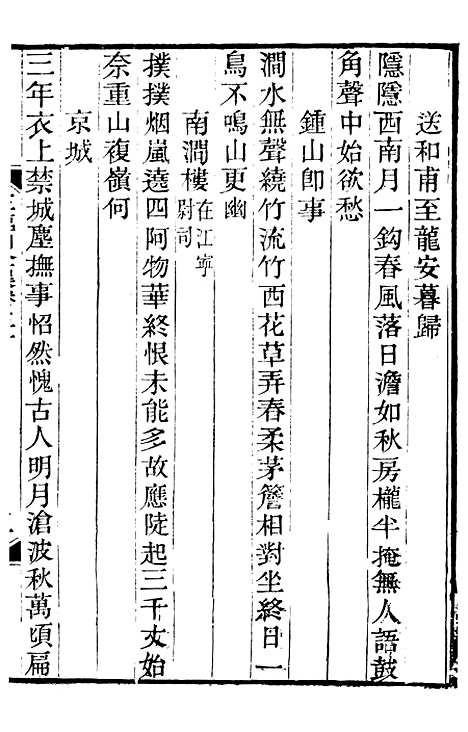 送和甫至龍安暮歸
隱隱西南月一鈎春風落日澹如秋房櫳半掩無人語鼓
角聲中始欲愁
鍾山卽事
澗水無聲繞竹流竹西花草弄春柔茅簷相對坐終日一
鳥不鳴山更幽
南澗樓在江寧尉司
撲撲烟嵐遶四阿物華終恨未能多故應陡起三千丈始
奈重山複嶺何
京城
三年衣上禁城塵撫事怊然愧古人明月滄波秋萬頃扁